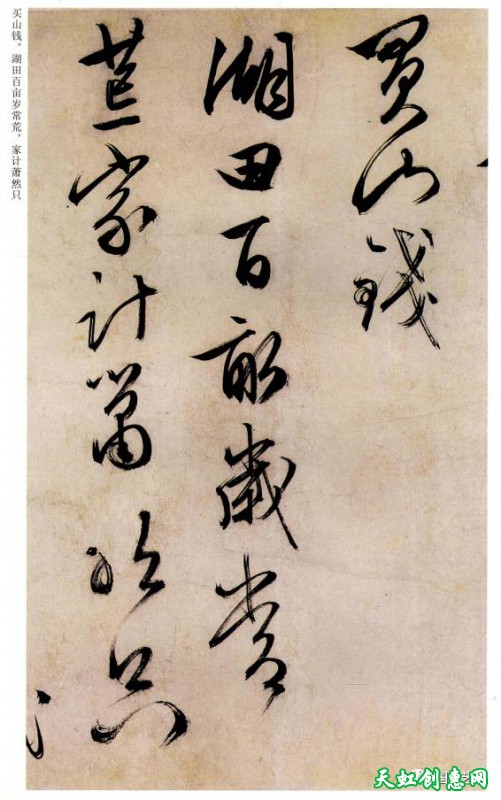 買山錢
湖田百畝歲常
荒家計蕭然只
买山钱。湖田百亩岁常荒。家计萧然只
天虹创惠网